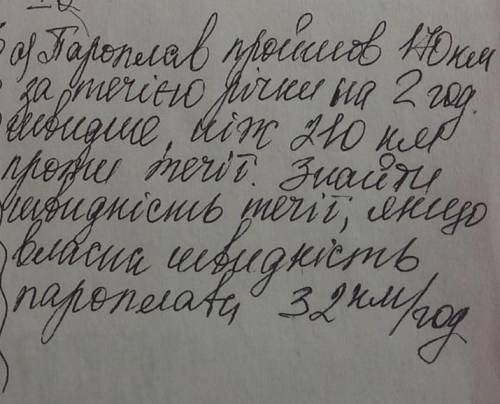 а) Пароплав пройшов 170 км
за течією річки на 2 год.
швидше, ніж 210 км
проти течії. Знайти
швидкість течії, якщо
власна швидкість
пароплава 32 км/год